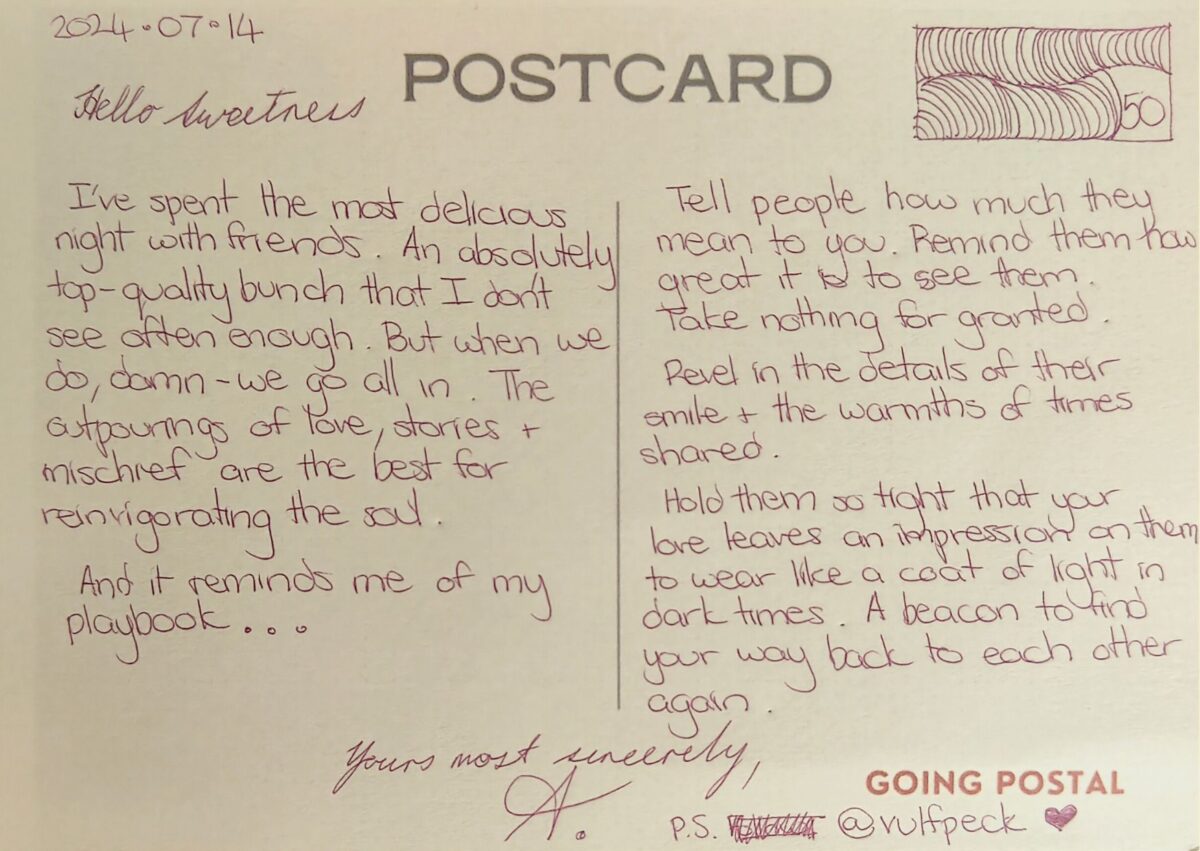 2024.07.14
POSTCARD
50
Hello Sweetness
I've spent the most delicious
night with friends. An absolutely
top-quality bunch that I don't
see often enough. But when we
do, damn - we go all in. The
outpourings of love, stories +
mischief are the best for
reinvigorating the soul.
And it reminds me of my
playbook...
Tell people how much they
mean to you. Remind them how
great it is to see them.
Take nothing for granted.
Revel in the details of their
smile + the warmths of times
shared.
Hold them so tight that your
love leaves an impression on them
to wear like a coat of light in
dark times. A beacon to find
your way back to each other
again.
Yours most sincerely,
A.
GOING POSTAL
P.S. @vulfpeck ♥